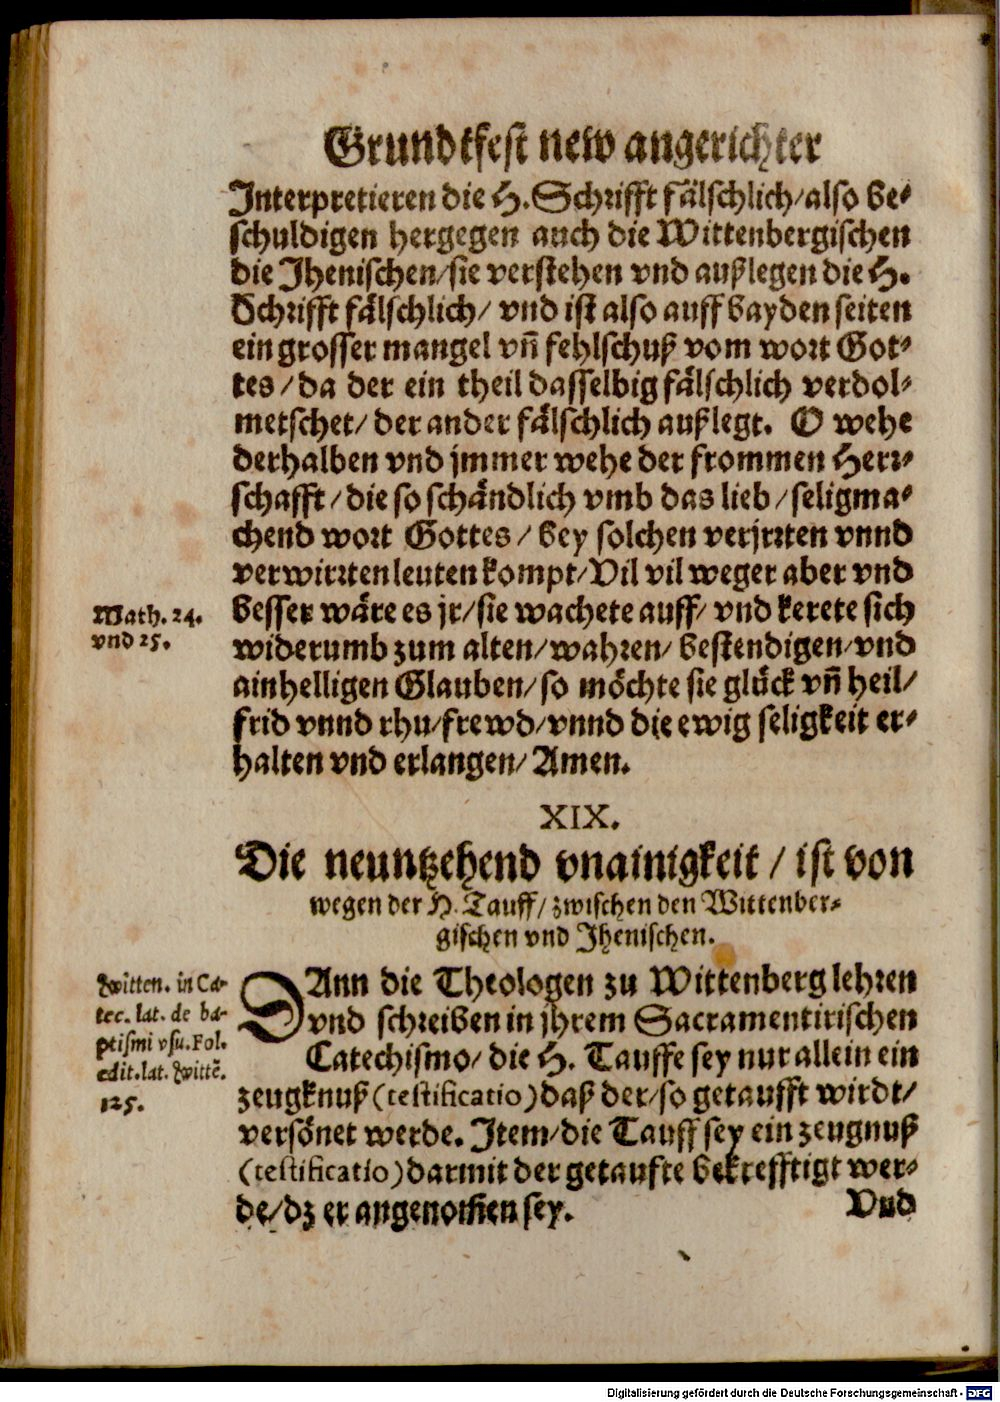 Grundtfest new angerichter
Interpretieren die H. Schrifft fälschlich/also be-
schuldigen hergegen auch die Wittenbergischen
die Jhenischen/sie verstehen vnd außlegen die H.
Schrifft fälschlich/ vnd ist also auff bayden seiten
ein grosser mangel vñ fehlschuß vom wort Got-
tes/da der ein theil dasselbig fälschlich verdol-
metschet/ der ander fälschlich außlegt. O wehe
derhalben vnd jmmer wehe der frommen Herr-
schafft/die so schändlich vmb das lieb/seligma-
chend wort Gottes/ bey solchen verjrrten vnnd
verwirrten leuten kompt/Vil vil weger aber vnd
Math. 24.
vnd 25.
besser wäre es jr/sie wachete auff/ vnd kerete sich
widerumb zum alten/wahren/ bestendigen/vnd
ainhelligen Glauben/so möchte sie glück vñ heil/
frid vnnd rhu/frewd/vnnd die ewig seligkeit er-
halten vnd erlangen/ Amen.
XIX.
Die neuntzehend vnainigkeit/ ist von
wegen der H. Tauff/zwischen den Wittenber-
gischen vnd Jhenischen.
Witten. in Ca-
tec. lat. de ba-
ptismi vsu. Fol.
edit. lat. Wittẽ.
125.
DAnn die Theologen zu Wittenberg lehren
vnd schreiben in jhrem Sacramentirischen
Catechismo/ die H. Tauffe sey nur allein ein
zeugknuß (testificatio) daß der/so getaufft wirdt/
versönet werde. Item/die Tauff sey ein zeugnuß
(testificatio) darmit der getaufte bekrefftigt wer-
de/dz er angenom̃en sey.
Vnd
Digitalisierung gefördert durch die Deutsche Forschungsgemeinschaft - DFG